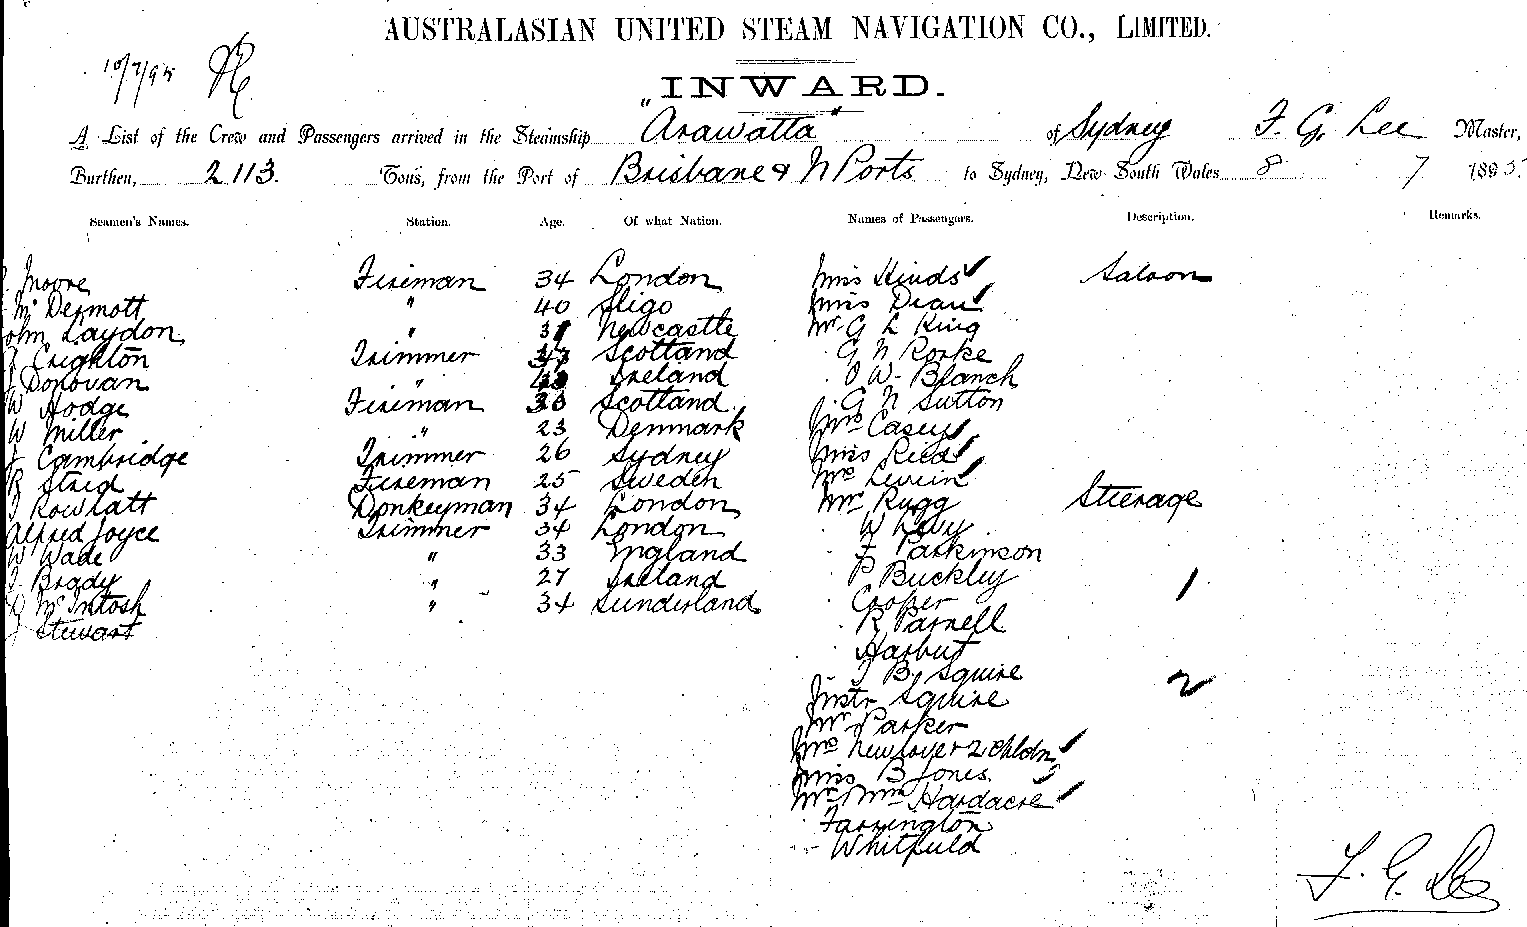 AUSTRALASIAN UNITED STEAM NAVIGATION CO., LIMITED.
10/7/95
INWARD.
A List of the Crew and Passengers arrived in the Steamship "Arawatta" of Sydney F. G. Lee Master,
Burthen, 2113. Tons, from the Port of Brisbane & N Ports to Sydney, New South Wales 8 7 1895
Seamen's Names. Station. Age. Of what Nation. Names of Passengers. Description. Remarks.
Moore Fireman 34 London Miss Hinds Saloon
McDermott " 40 Sligo Miss Dean
John Laydon " Newcastle Mr G L King
J Crighton Trimmer Scotland G N Rorke
J Donovan " Ireland O W. Blanch
W Hodge Fireman Scotland G N Sutton
W Miller " 23 Denmark Mrs Casey
J Cambridge Trimmer 26 Sydney Miss Reid
R Strid Fireman 25 Sweden
J Rowlatt Donkeyman 34 London Mr Rugg Steerage
Alfred Joyce Trimmer 34 London W Levy
W Wade " 33 England F Parkinson
J Brady " 27 Ireland P Buckley 1
J McIntosh " 34 Sunderland Cooper
J Stewart R Parnell
Harbut
J B. Squire 2
Mstr Squire
Mr Parker
Mrs & 2 chldn
Miss B Jones
Mr & Mrs Hardacre
Farrington
Whitfield
F. G. Lee